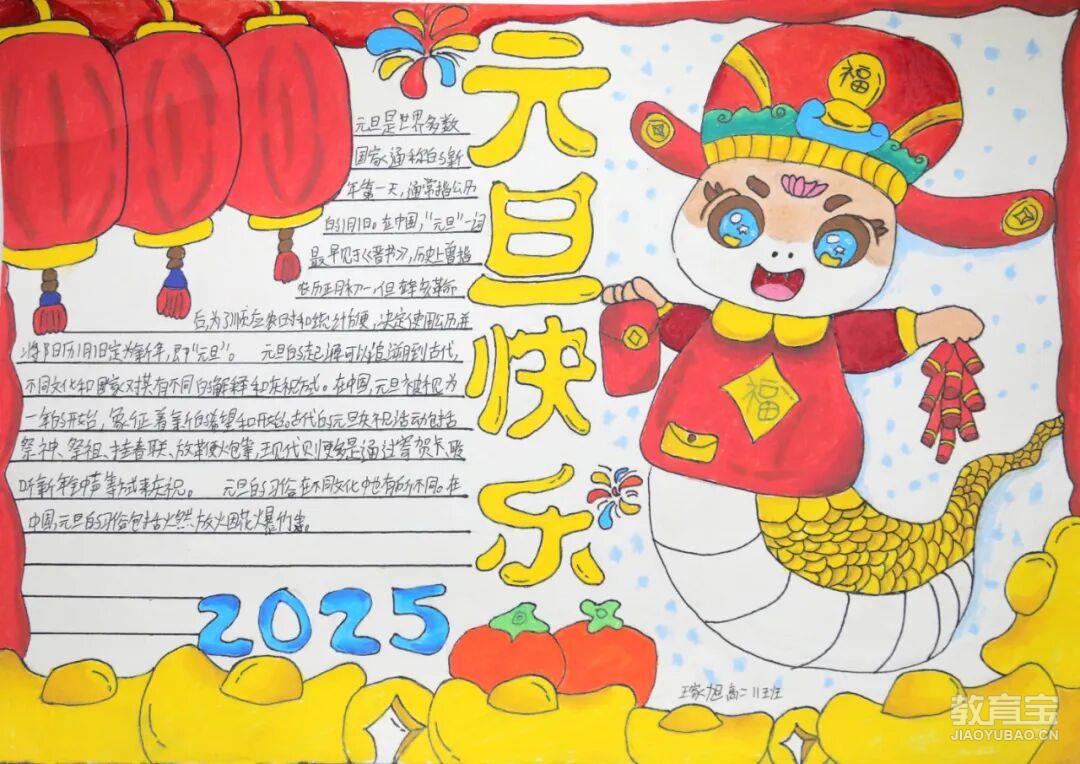 元旦快乐
元旦是世界多数
国家通称的新
年第一天,通常指公历
的1月1日。在中国,“元旦”一词
最早见于《晋书》,历史上曾指
农历正月初一,但辛亥革命
后为了顺应农时和统计方便,决定使用公历并
将阳历1月1日定为新年,即“元旦”。 元旦的起源可以追溯到古代,
不同文化和国家对其有不同的解释和庆祝方式。在中国,元旦被视为
一年的开始,象征着新的希望和开始。古代的元旦庆祝活动包括
祭神、祭祖、挂春联、放鞭炮等,现代则更多是通过寄贺卡、聆
听新年钟声等方式来庆祝。 元旦的习俗在不同文化中也有所不同。在
中国,元旦的习俗包括燃放烟花爆竹
2025
福
福
王家旭 高二11班
教育宝
JIAOYUBAO.CN